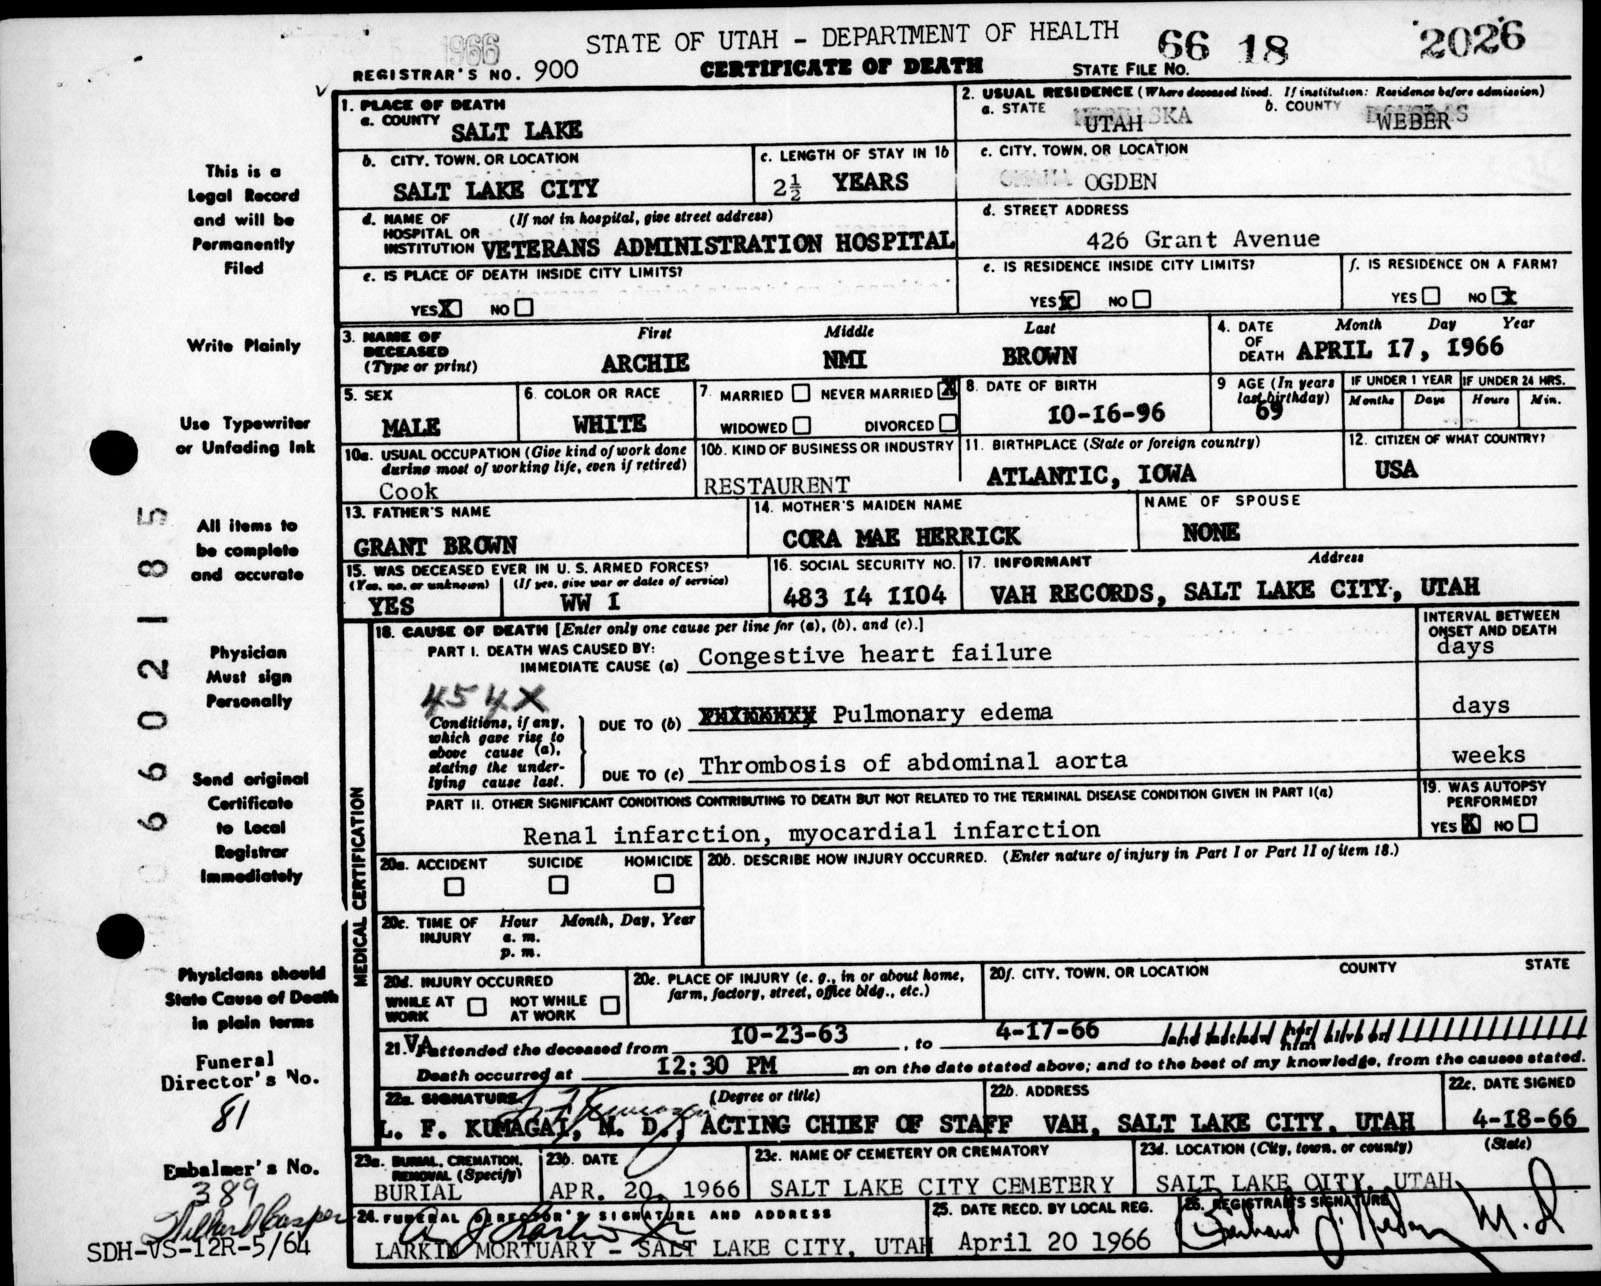 1966
STATE OF UTAH - DEPARTMENT OF HEALTH
66 18 2026
REGISTRAR'S NO. 900
CERTIFICATE OF DEATH
STATE FILE NO.
1. PLACE OF DEATH
a. COUNTY
SALT LAKE
2. USUAL RESIDENCE (Where deceased lived. If institution: Residence before admission)
a. STATE UTAH b. COUNTY WEBER
b. CITY, TOWN, OR LOCATION
SALT LAKE CITY
c. LENGTH OF STAY IN 1b
2½ YEARS
c. CITY, TOWN, OR LOCATION
OGDEN
d. NAME OF HOSPITAL OR INSTITUTION (If not in hospital, give street address)
VETERANS ADMINISTRATION HOSPITAL
d. STREET ADDRESS
426 Grant Avenue
e. IS PLACE OF DEATH INSIDE CITY LIMITS?
YES X NO
e. IS RESIDENCE INSIDE CITY LIMITS?
YES X NO
f. IS RESIDENCE ON A FARM?
YES NO X
3. NAME OF DECEASED (Type or print)
First Middle Last
ARCHIE NMI BROWN
4. DATE OF DEATH Month Day Year
APRIL 17, 1966
5. SEX
MALE
6. COLOR OR RACE
WHITE
7. MARRIED NEVER MARRIED X
WIDOWED DIVORCED
8. DATE OF BIRTH
10-16-96
9 AGE (In years last birthday)
69
IF UNDER 1 YEAR IF UNDER 24 HRS.
Months Days Hours Min.
10a. USUAL OCCUPATION (Give kind of work done during most of working life, even if retired)
Cook
10b. KIND OF BUSINESS OR INDUSTRY
RESTAURENT
11. BIRTHPLACE (State or foreign country)
ATLANTIC, IOWA
12. CITIZEN OF WHAT COUNTRY?
USA
13. FATHER'S NAME
GRANT BROWN
14. MOTHER'S MAIDEN NAME
CORA MAE HERRICK
NAME OF SPOUSE
NONE
15. WAS DECEASED EVER IN U. S. ARMED FORCES?
(Yes, no, or unknown) (If yes, give war or dates of service)
YES WW I
16. SOCIAL SECURITY NO.
483 14 1104
17. INFORMANT Address
VAH RECORDS, SALT LAKE CITY, UTAH
MEDICAL CERTIFICATION
18. CAUSE OF DEATH [Enter only one cause per line for (a), (b), and (c).]
INTERVAL BETWEEN ONSET AND DEATH
PART I. DEATH WAS CAUSED BY:
IMMEDIATE CAUSE (a) Congestive heart failure days
454X
Conditions, if any, which gave rise to above cause (a), stating the underlying cause last.
DUE TO (b) Pulmonary edema days
DUE TO (c) Thrombosis of abdominal aorta weeks
PART II. OTHER SIGNIFICANT CONDITIONS CONTRIBUTING TO DEATH BUT NOT RELATED TO THE TERMINAL DISEASE CONDITION GIVEN IN PART I(a)
Renal infarction, myocardial infarction
19. WAS AUTOPSY PERFORMED?
YES X NO
20a. ACCIDENT SUICIDE HOMICIDE
20b. DESCRIBE HOW INJURY OCCURRED. (Enter nature of injury in Part I or Part II of item 18.)
20c. TIME OF INJURY Hour Month, Day, Year
a. m.
p. m.
20d. INJURY OCCURRED
WHILE AT WORK NOT WHILE AT WORK
20e. PLACE OF INJURY (e. g., in or about home, farm, factory, street, office bldg., etc.)
20f. CITY, TOWN, OR LOCATION COUNTY STATE
21. VA attended the deceased from 10-23-63, to 4-17-66
Death occurred at 12:30 PM m on the date stated above; and to the best of my knowledge, from the causes stated.
22a. SIGNATURE (Degree or title)
L. F. KUMAGAI, M. D., ACTING CHIEF OF STAFF
22b. ADDRESS
VAH, SALT LAKE CITY, UTAH
22c. DATE SIGNED
4-18-66
23a. BURIAL, CREMATION, REMOVAL (Specify)
BURIAL
23b. DATE
APR. 20, 1966
23c. NAME OF CEMETERY OR CREMATORY
SALT LAKE CITY CEMETERY
23d. LOCATION (City, town, or county) (State)
SALT LAKE CITY, UTAH
24. FUNERAL DIRECTOR'S SIGNATURE AND ADDRESS
LARKIN MORTUARY - SALT LAKE CITY, UTAH
25. DATE RECD. BY LOCAL REG.
April 20 1966
26. REGISTRAR'S SIGNATURE
M.D
This is a
Legal Record
and will be
Permanently
Filed
Write Plainly
Use Typewriter
or Unfading Ink
All items to
be complete
and accurate
Physician
Must sign
Personally
Send original
Certificate
to Local
Registrar
Immediately
Physicians should
State Cause of Death
in plain terms
Funeral
Director's No.
81
Embalmer's No.
389
SDH-VS-12R-5/64
06602185